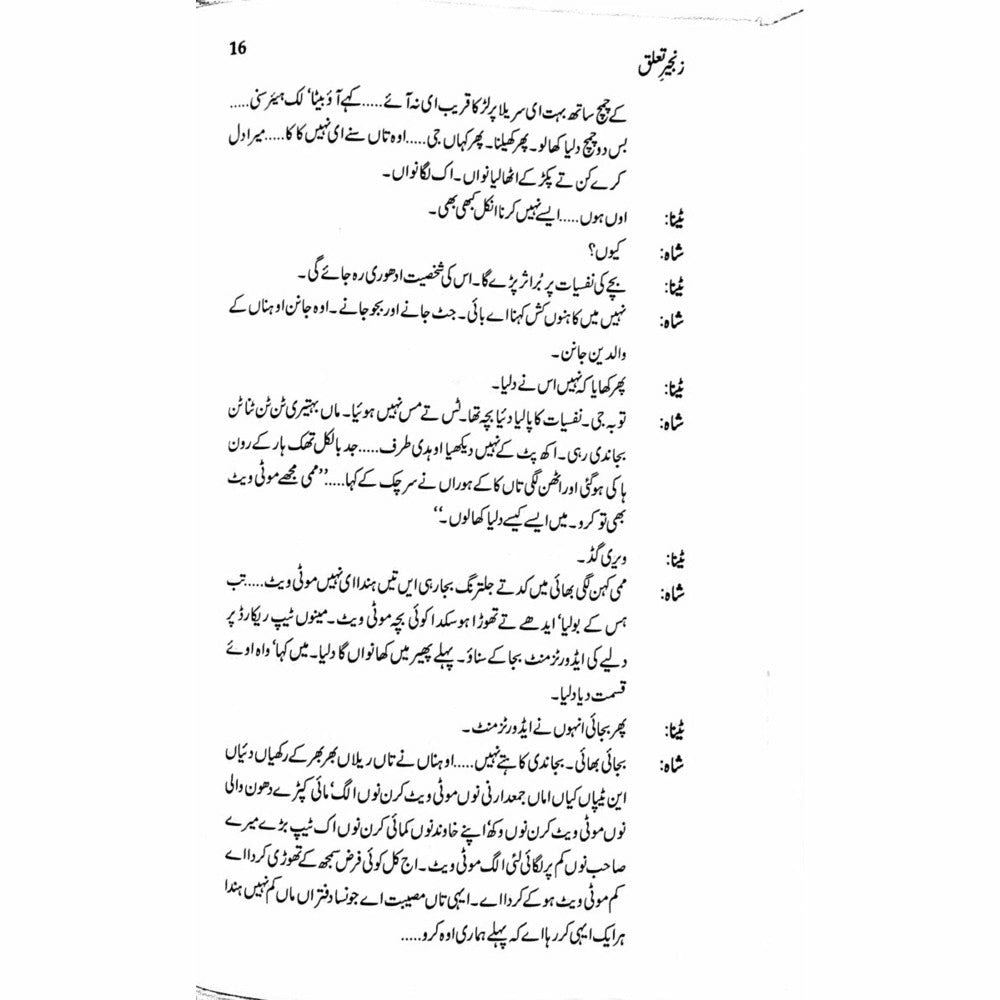 زنجیرِ تعلق 16
کے چمچ ساتھ بہت ای سریلا پر لڑکا قریب ای نہ آئے.....کہے آؤ بیٹا، لک ہیئر سنی.....
بس دو چمچ دلیا کھالو۔ پھر کھیلنا۔ پھر کہاں جی.....اوہ تاں سنے ای نہیں کا کا.....میرا دل
کرے کن تے پکڑ کے اٹھالیا نواں۔ اک لگا نواں۔
ٹینا: اوں ہوں.....ایسے نہیں کرنا انکل کبھی بھی۔
شاہ: کیوں؟
ٹینا: بچے کی نفسیات پر بُرا اثر پڑے گا۔ اس کی شخصیت ادھوری رہ جائے گی۔
شاہ: نہیں میں کاہنوں کش کہنا اے بائی۔ جٹ جانے اور بجو جانے۔ اوہ جانن اوہناں کے
والدین جانن۔
ٹینا: پھر کھایا کہ نہیں اس نے دلیا۔
شاہ: توبہ جی۔ نفسیات کا پالیا دئیا بچہ تھا۔ ٹس تے مس نہیں ہوئیا۔ ماں بہتیری ٹن ٹن ٹنا ٹن
بجاندی رہی۔ اکھ پٹ کے نہیں دیکھیا اوہدی طرف.....جد بالکل تھک ہار کے رون
ہاکی ہوگئی اور اٹھن لگی تاں کا کے ہوراں نے سر چک کے کہا.....’’ممی مجھے موٹی ویٹ
بھی تو کرو۔ میں ایسے کیسے دلیا کھالوں۔‘‘
ٹینا: ویری گڈ۔
شاہ: ممی کہن لگی بھائی میں کدتے جلترنگ بجارہی ایں تیں ہندا ای نہیں موٹی ویٹ.....تب
ہس کے بولیا، ایدھے تے تھوڑا ہوسکدا کوئی بچہ موٹی ویٹ۔ مینوں ٹیپ ریکارڈ پر
دلیے کی ایڈورٹزمنٹ بجا کے سناؤ۔ پہلے پھیر میں کھانواں گا دلیا۔ میں کہا، واہ اوئے
قسمت دیا دلیا۔
ٹینا: پھر بجائی انہوں نے ایڈورٹزمنٹ۔
شاہ: بجائی بھائی۔ بجاندی کاہتے نہیں.....اوہناں نے تاں ریلاں بھر بھر کے رکھیاں دئیاں
این ٹیپاں کیاں اماں جمعدارنی نوں موٹی ویٹ کرن نوں الگ، مائی کپڑے دھون والی
نوں موٹی ویٹ کرن نوں وکھ، اپنے خاوند نوں کمائی کرن نوں اک ٹیپ بڑے میرے
صاحب نوں کم پر لگائی لئی الگ موٹی ویٹ۔ اج کل کوئی فرض سمجھ کے تھوڑی کردا اے
کم موٹی ویٹ ہو کے کردا اے۔ ایہی تاں مصیبت اے جونسا دفتراں ماں کم نہیں ہندا
ہر ایک ایہی کر رہا اے کہ پہلے ہماری اوہ کرو.....